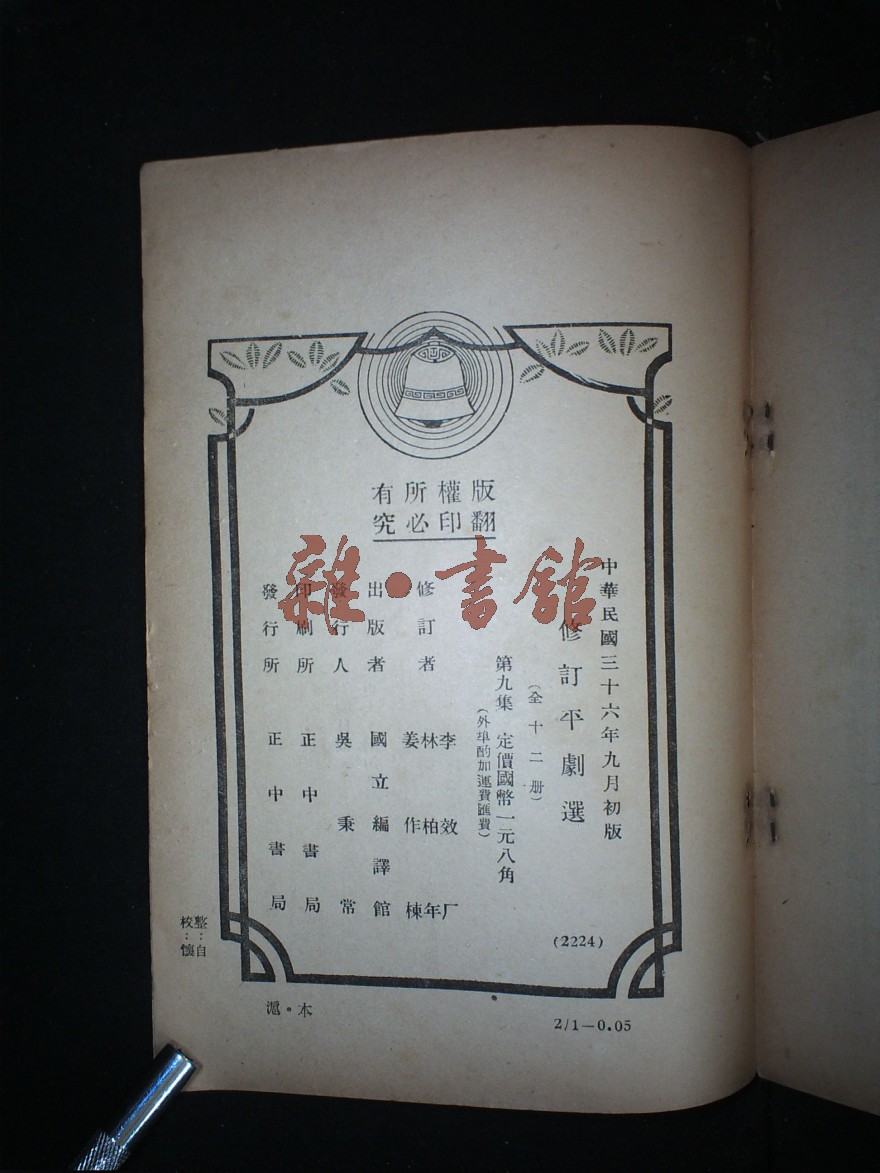 版權所有
翻印必究
中華民國三十六年九月初版
修訂平劇選
(全十二册)
第九集 定價國幣一元八角
(外埠酌加運費匯費)
修訂者 李效厂
林柏年
姜作棟
出版者 國立編譯館
發行人 吳秉常
印刷所 正中書局
發行所 正中書局
(2224)
整:自
校:懷
滬•本
2/1—0.05
雜•書館